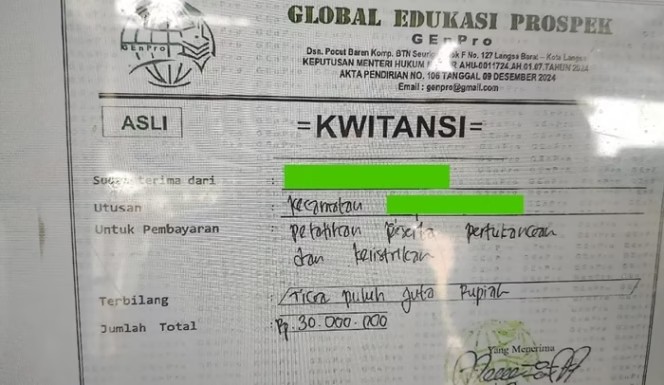 GLOBAL EDUKASI PROSPEK
GEnPro
GEnPro
Dsn. Pocut Baren Komp. BTN F No. 127 Langsa Barat - Kota Langsa
KEPUTUSAN MENTERI HUKUM AHU-0011724.AH.01.07.TAHUN
AKTA PENDIRIAN NO. 106 TANGGAL 09 DESEMBER 2024
Email : genpro@gmail.com
ASLI
=KWITANSI=
terima dari :
Utusan : Kecamatan
Untuk Pembayaran : pelatihan peserta pertukangan
dan kelistrikan
Terbilang : Tiga puluh juta Rupiah
Jumlah Total : Rp. 30.000.000
Yang Menerima